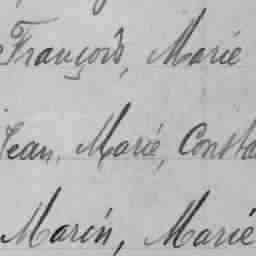 François, Marie
Jean, Marie, Consta
Marin, Marie